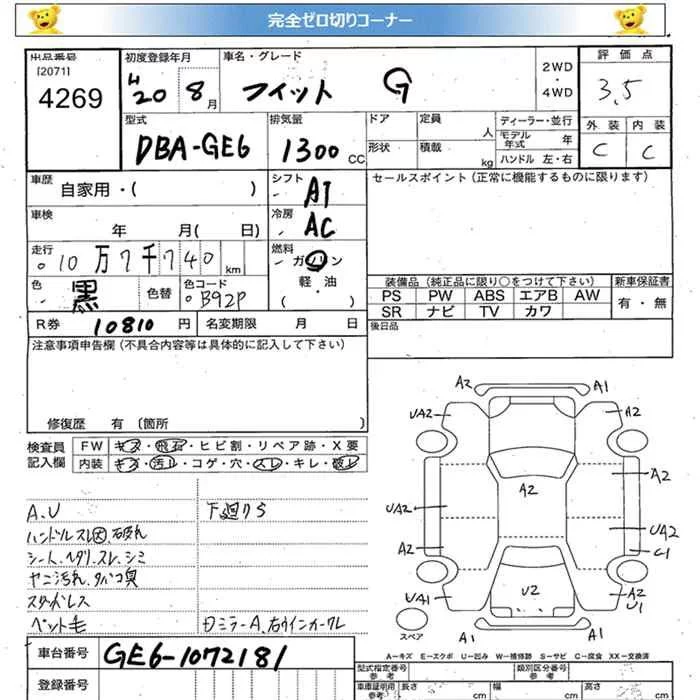 完全ゼロ切りコーナー
出品番号
[2071]
4269
初度登録年月
H20 8月
車名・グレード
フィット G
2WD
・
4WD
評価点
3.5
外装 内装
C C
型式
DBA-GE6
排気量
1300 CC
ドア
形状
定員 人
積載 kg
ディーラー・並行
モデル年式 年
ハンドル 左・右
車歴
自家用・( )
シフト
AT
セールスポイント (正常に機能するものに限ります)
車検
年 月( 日)
冷房
AC
走行
10万7千740 km
燃料
ガソリン
軽・油
( )
色
黒
色替
色コード
B92P
装備品 (純正品に限り○をつけて下さい)
PS PW ABS エアB AW
SR ナビ TV カワ
新車保証書
有・無
R券 10810 円 名変期限 月 日
後日品
注意事項申告欄 (不具合内容等は具体的に記入して下さい)
修復歴 有 (箇所 )
検査員
記入欄
FW キズ・飛石・ヒビ割・リペア跡・X要
内装 キズ・汚レ・コゲ・穴・スレ・キレ・破レ
A.U
ハンドルスレ因、破れ
シート、ヘタリ、スレ、シミ
ヤニ汚れ、タバコ臭
スタッドレス
ペット毛
下廻りS
ミラーA、右ウインカークレ
A2 A1
UA2 A2
A2
A2
UA2
UA2
A2
C1
U2
UA1
A2
U1
A1 A1
スペア
A=キズ E=エクボ U=凹み W=補修跡 S=サビ C=腐食 XX=交換済
車台番号
GE6-1072181
登録番号
型式指定番号
参考
類別区分番号
参考
車庫証明用
参考
長さ cm
幅 cm
高さ cm